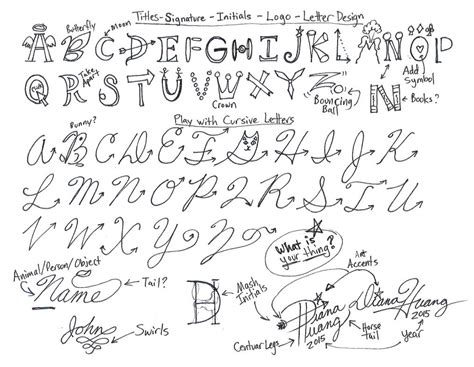 Titles-Signature - Initials - Logo - Letter Design
Butterfly
Moon
A B C D E F G H I J K L M N O P
Take Apart
Q R S T U V W X Y Z
Crown
Bouncing Ball
Add Symbol
N
Books?
Play with Cursive Letters
Bunny?
A B C D E F G H I J K
L M N O P Q R S T U
V W X Y Z
What is your thing?
Animal/Person/Object
Name
Tail?
Mash Initials
DH
Art Accents
Diana Huang 2015
Diana Huang 2015
Year
Horse tail
Centuar Legs
John
Swirls